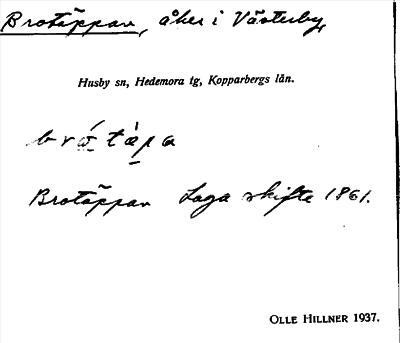 Brotäppan, åker i Västerby,
Husby sn, Hedemora tg, Kopparbergs län.
brótàpa
Brotäppan Laga skifte 1861.
OLLE HILLNER 1937.